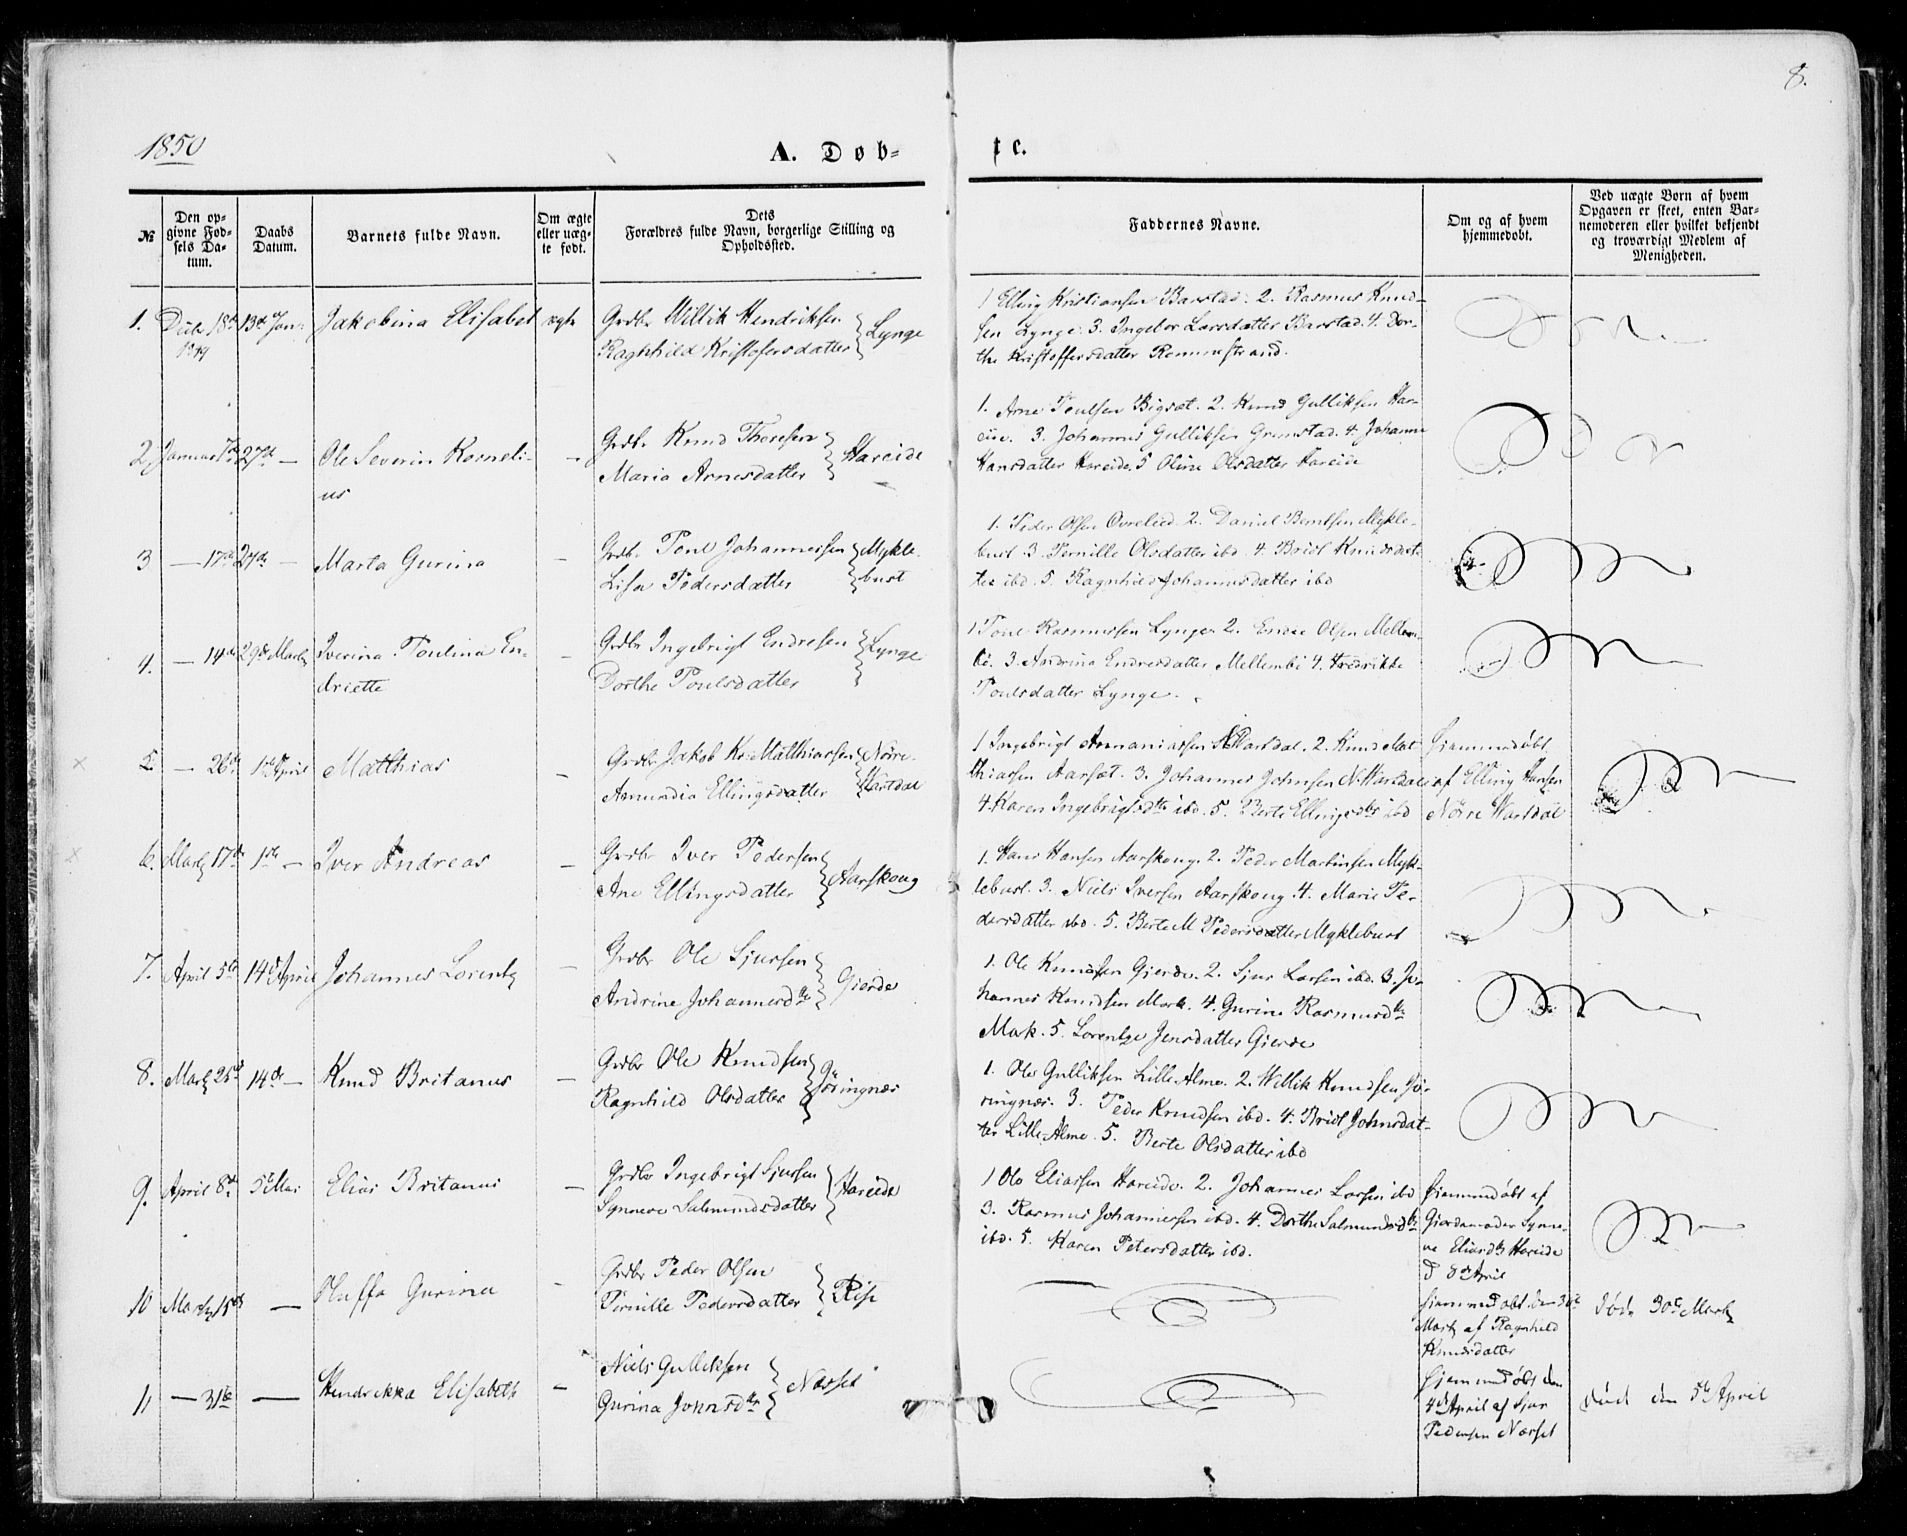 8.
1850
A. Døb-
te.
№
Den op-
givne Fød-
sels Da-
tum.
Daabs
Datum.
Barnets fulde Navn.
Om ægte
eller uæg-
te født.
Dets
Forældres fulde Navn, borgerlige Stilling og
Opholdssted.
Faddernes Navne.
Om og af hvem
hjemmedøbt.
Ved uægte Børn af hvem
Opgaven er skeet, enten Bar-
nemoderen eller hvilket bekjendt
og troværdigt Medlem af
Menigheden.
1. 18de 13de Jan: Jakobina Elisabet ægte Grdbr Willik Hendriksen
Raghnild Kristofersdatter Lynge
1 Elling Kristiansen Barstad. 2. Rasmus Knud-
sen Lynge. 3. Ingebor Larsdatter Barstad. 4. Dor-
the Kristoffersdatter
2 Januar 7de 27de — Ole Severin Korneli-
us
— Grdbr Knud
Maria Arnesdatter Hareide
1. Arne Poulsen Bigset. 2. Knud Gulliksen Har-
eide. 3. Johannes Gulliksen Grimstad. 4. Johanne
Hansdatter Hareide. 5 Oline Olsdatter Hareide
3 — 17de 27de — Marta Gurina
— Grdbr Poul Johannessen
Lisa Pedersdatter
Mykle-
bust
1. Peder Olsen 2. Daniel Berntsen Mykle-
bust. 3. Pernille Olsdatter ibd. 4. Bridt Knudsdat-
ter ibd. 5. Ragnhild Johannesdatter ibd
4. — 14de 29de Martz Iverina Poulina En-
driette
— Grdbr Ingebrigt Endresen
Dorthe Poulsdatter Lynge
1 Poul Rasmussen Lynge 2. Endre Olsen Mellem-
bö. 3. Andrina Endresdatter Mellembö 4. Fredrikke
Poulsdatter Lynge.
5 — 26de 1ste April Matthias
— Grdbr Jakob Kr. Matthiassen
Amundia Ellingsdatter
Nörre-
Vartdal
1 Ingebrigt Annaniassen N Vartdal. 2. Knud Mat
thiassen Aarsæt. 3. Johannes Johnsen N. Wartdal
4. Karen Ingebrigtsdtr ibd. 5. Berte Ellingsdtr ibd
Hjemmedøbt
af Elling Hansen
Nörre Wartdal
6. Martz 17de 1ste — Iver Andreas
— Grdbr Iver Pedersen
Ane Ellingsdatter Aarskoug
1. Hans Hansen Aarskoug. 2. Peder Martinsen Myk-
lebust. 3. Niels Iversen Aarskoug. 4. Marie Pe-
dersdatter ibd. 5. Berte M Pedersdatter Myklebust
7. April 5te 14de April Johannes Lorentz
— Grdbr Ole Sjursen
Andrine Johannesdtr Gjerde
1. Ole Knudsen Gjerde. 2. Sjur Larsen ibd. 3. Jo-
hannes Knudsen Mork. 4. Gurine Rasmusdtr
Mork. 5. Lorentze Jensdatter Gjerde
8. Martz 25de 14de — Knud Britanus
— Grdbr Ole Knudsen
Ragnhild Olsdatter Jöringnæs
1. Ole Gulliksen Lille Alme. 2. Willik Knudsen Jö-
ringnæs. 3. Peder Knudsen ibd. 4. Bridt Johnsdat-
ter Lille-Alme. 5. Berte Olsdatter ibd
9. April 8de 5te Mai Elias Britanus
— Grdbr Ingebrigt Sjursen
Synneve Salmundsdatter Hareide
1 Ole Eliassen Hareide. 2. Johannes Larsen ibd
3. Rasmus Johannessen ibd. 4. Dorthe Salmundsdtr
ibd. 5. Karen Petersdatter ibd.
Hjemmedøbt af
Gjordemoder Synne-
ve Eliasdtr Hareide
d 8de April
10 Martz 15de — Oluffa Gurina
— Grdbr Peder Olsen
Pernille Pedersdatter Risе
Hjemmedøbt den
Martz af Ragnhild
Knudsdatter
døde 30te Martz
11 — 31te — Hendrikka Elisabeth
— Niels Gulliksen
Gurina Johnsdtr Næsset
Hjemmedøbt den
4de April af Sjur
Pedersen Næsset
død den 5te April